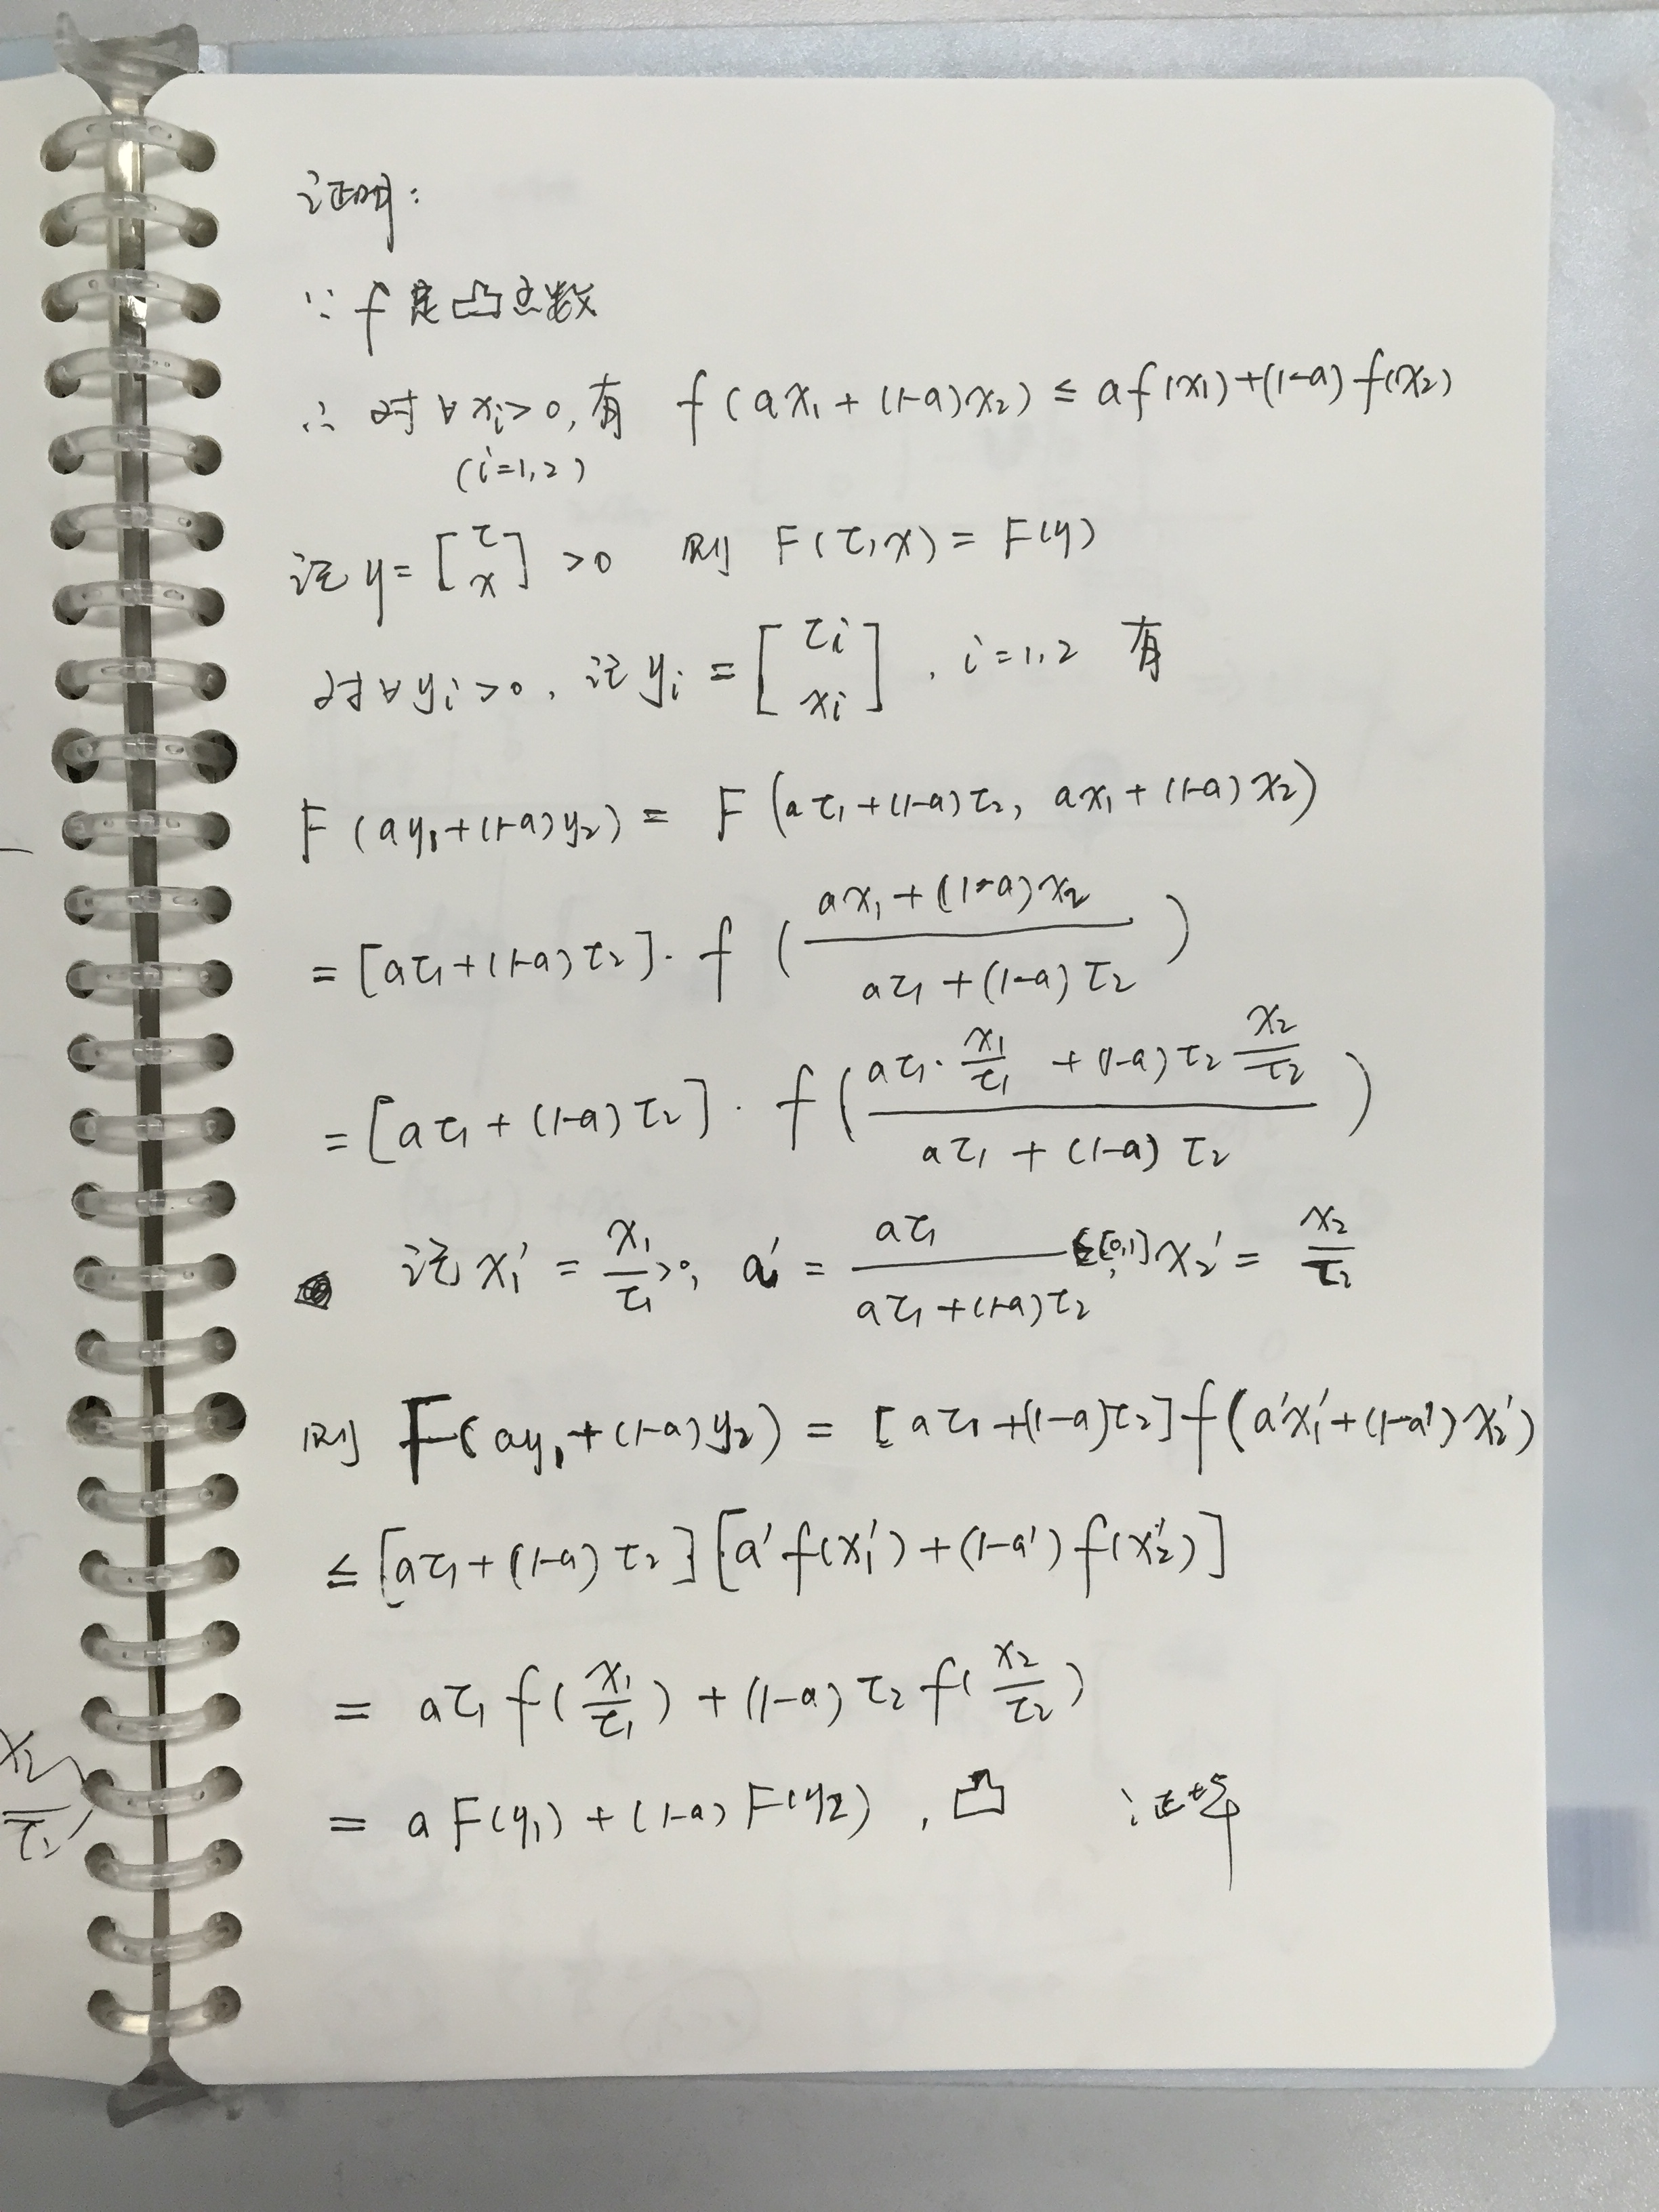 证明：
∵ f 是凸函数
∴ 对 ∀ xi>0, 有 f(ax₁+(1-a)x₂) ≤ af(x₁)+(1-a)f(x₂)
(i=1,2)
记 y = [τ x] >0 则 F(τ,x) = F(y)
对 ∀ yi>0, 记 yi = [τi xi], i=1,2 有
F(ay₁+(1-a)y₂) = F(aτ₁+(1-a)τ₂, ax₁+(1-a)x₂)
= [aτ₁+(1-a)τ₂]· f( (ax₁+(1-a)x₂) / (aτ₁+(1-a)τ₂) )
= [aτ₁+(1-a)τ₂]· f( (aτ₁· x₁/τ₁ +(1-a)τ₂ x₂/τ₂) / (aτ₁+(1-a)τ₂) )
记 x₁' = x₁/τ₁ >0, a' = aτ₁ / (aτ₁+(1-a)τ₂) ∈[0,1], x₂' = x₂/τ₂
则 F(ay₁+(1-a)y₂) = [aτ₁+(1-a)τ₂]f(a'x₁'+(1-a')x₂')
≤ [aτ₁+(1-a)τ₂][a'f(x₁')+(1-a')f(x₂')]
= aτ₁f(x₁/τ₁)+(1-a)τ₂f(x₂/τ₂)
= aF(y₁)+(1-a)F(y₂), 凸 证毕
x₂
τ₂